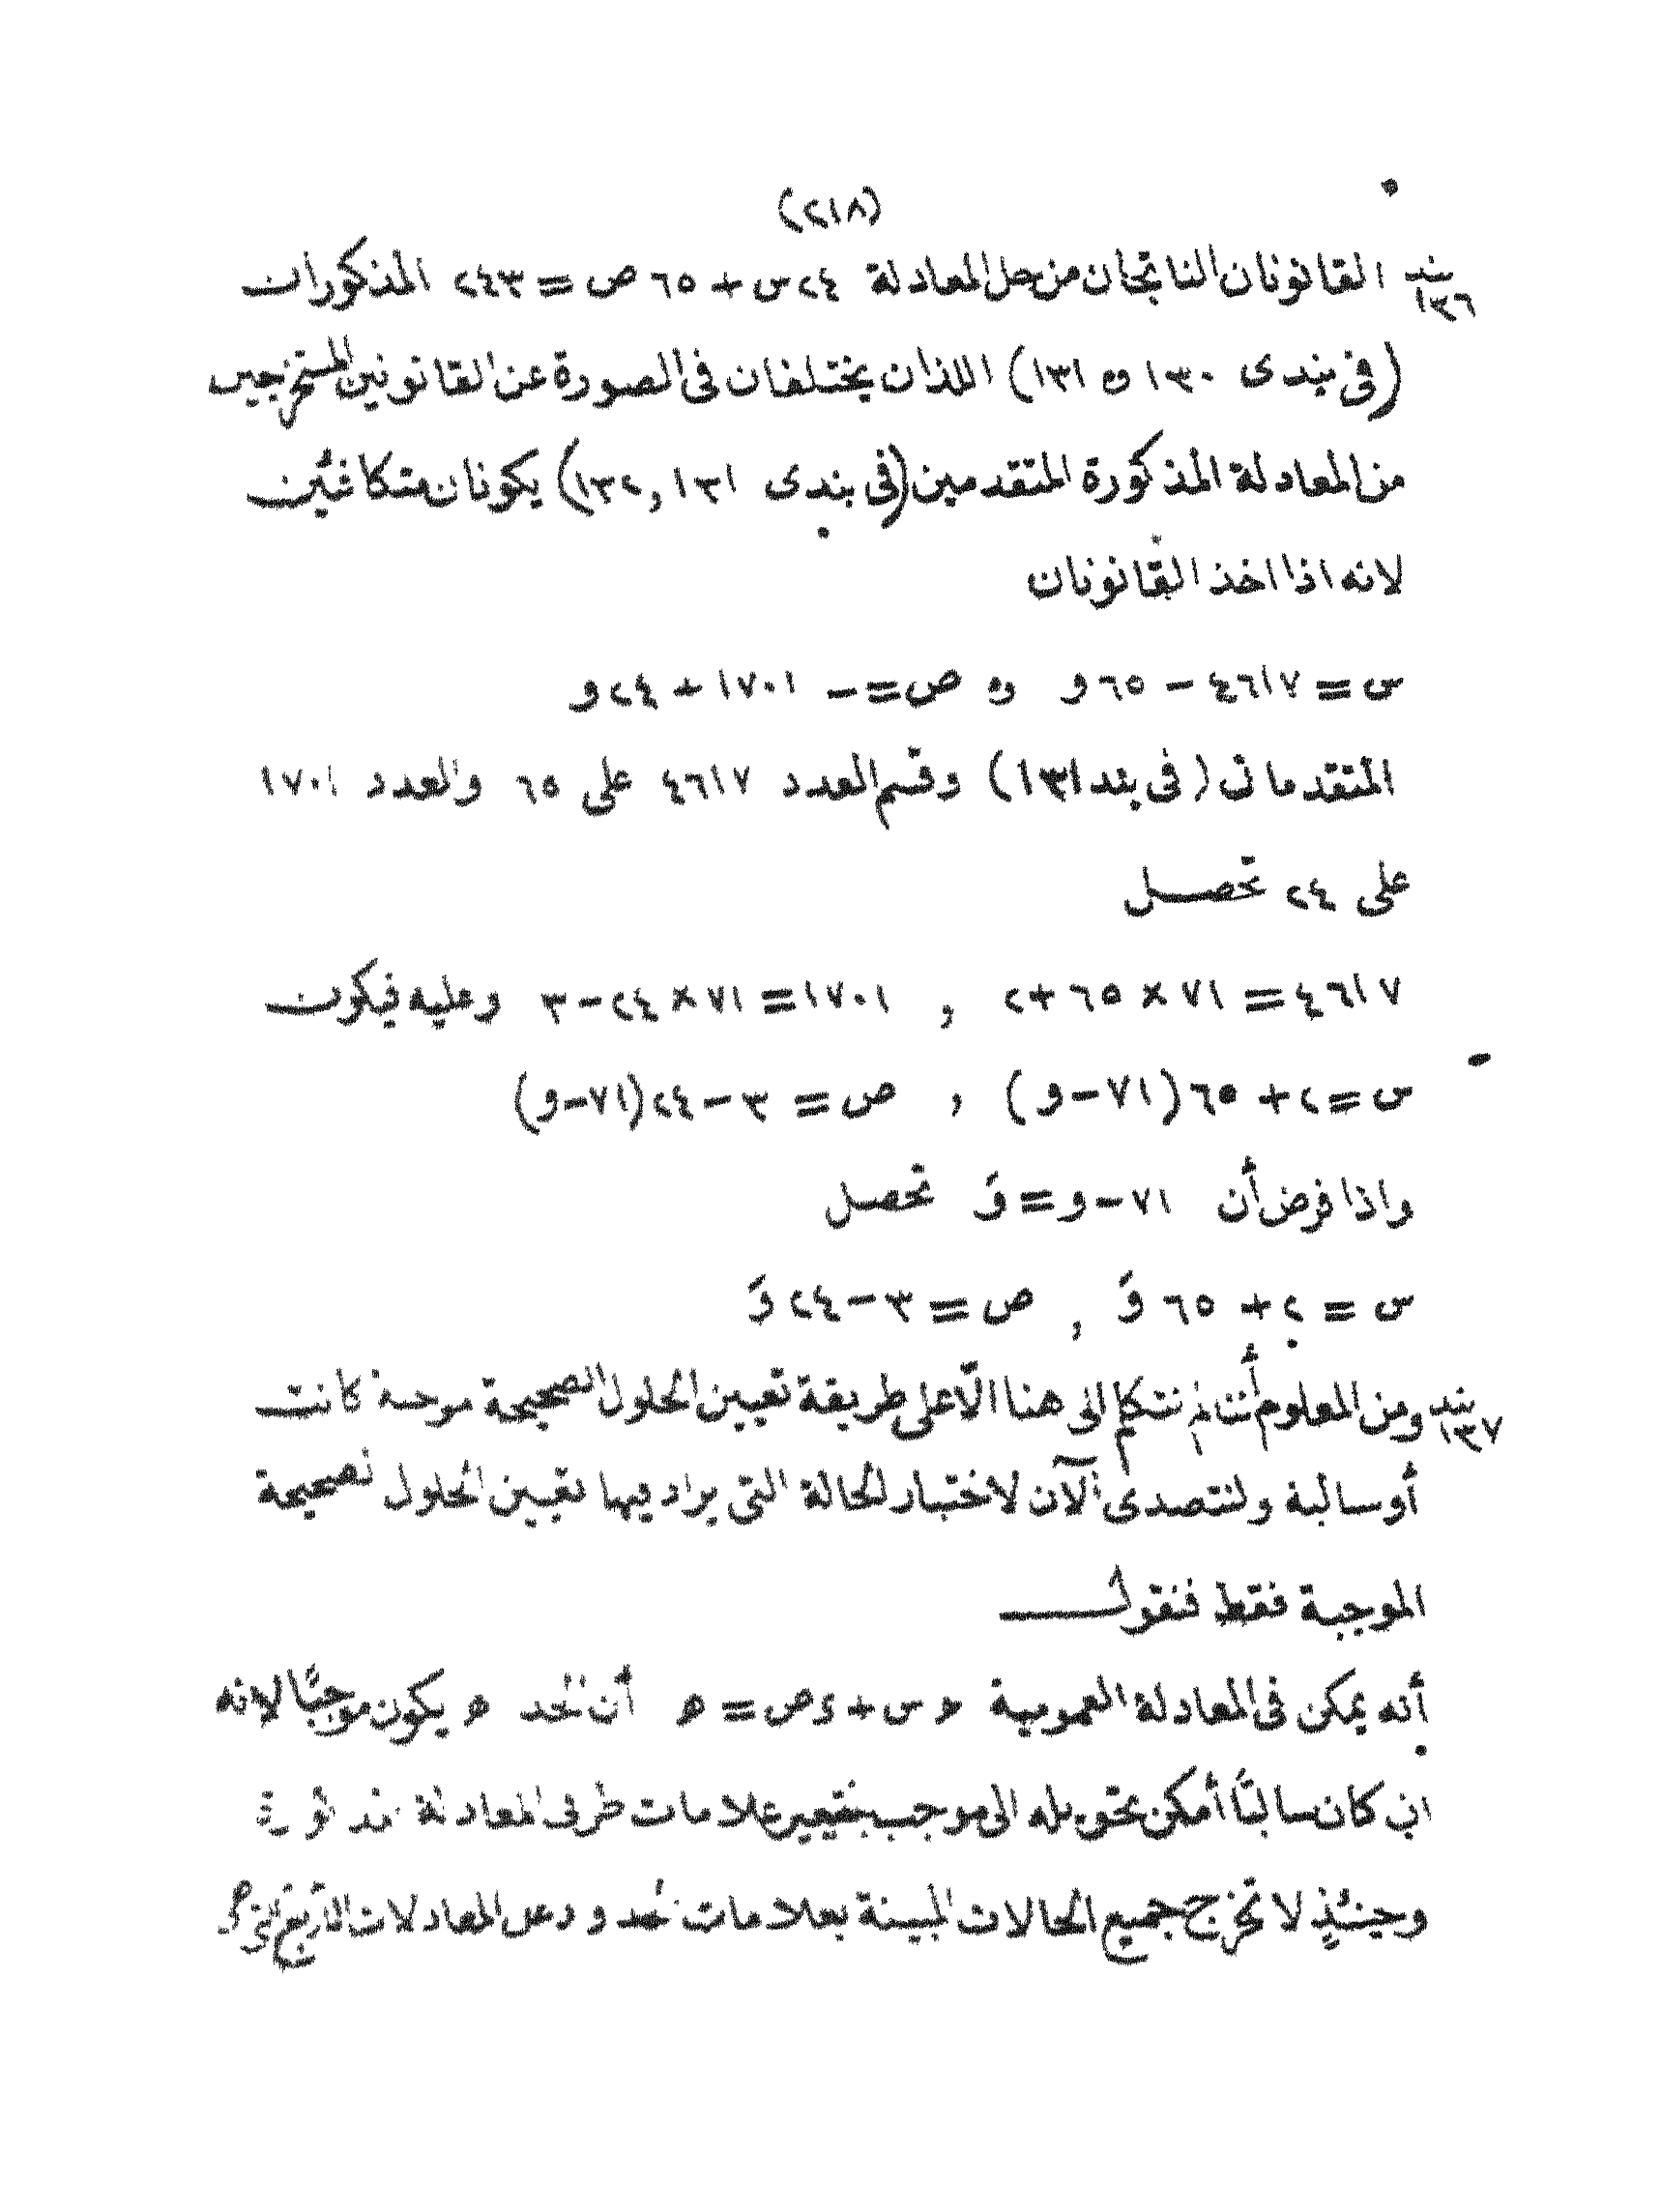 (٢١٨)
بند ١٣٦ القانونان الناتجان من حل المعادلة ٢٤ س + ٦٥ ص = ٢٤٣ المذكوران
(فى بندى ١٣٠ و ١٣١) اللذان يختلفان فى الصورة عن القانونين المستخرجين
من المعادلة المذكورة المتقدمين (فى بندى ١٣١ , ١٣٢) يكونان متكافئين
لانه اذا اخذ القانونان
س = ٤٦١٧ - ٦٥ و و ص = - ١٧٠١ + ٢٤ و
المتقدمان (فى بند ١٣١) وقسم العدد ٤٦١٧ على ٦٥ والعدد ١٧٠١
على ٢٤ تحصل
٤٦١٧ = ٧١ × ٦٥ + ٢ , ١٧٠١ = ٧١ × ٢٤ - ٣ وعليه فيكون
س = ٢ + ٦٥ (٧١ - و) , ص = ٣ - ٢٤ (٧١ - و)
واذا فرض أن ٧١ - و = وَ تحصل
س = ٢ + ٦٥ وَ , ص = ٣ - ٢٤ وَ
بند ١٣٧ ومن المعلوم أننا لم نتكلم الى هنا الّا على طريقة تعيين الحلول الصحيحة موجبة كانت
أو سالبة ولنتصدى الآن لاختبار الحالة التى يراد فيها تعيين الحلول الصحيحة
الموجبة فقط فنقول
أنه يمكن فى المعادلة العمومية حـ س + ء ص = هـ أن الحد هـ يكون موجبًا لانه
ان كان سالبًا أمكن تحويله الى موجب بتغيير علامات طرفى المعادلة المذكورة
وحينئذٍ لا تخرج جميع الحالات المبينة بعلامات حدود المعادلات الاربع التى